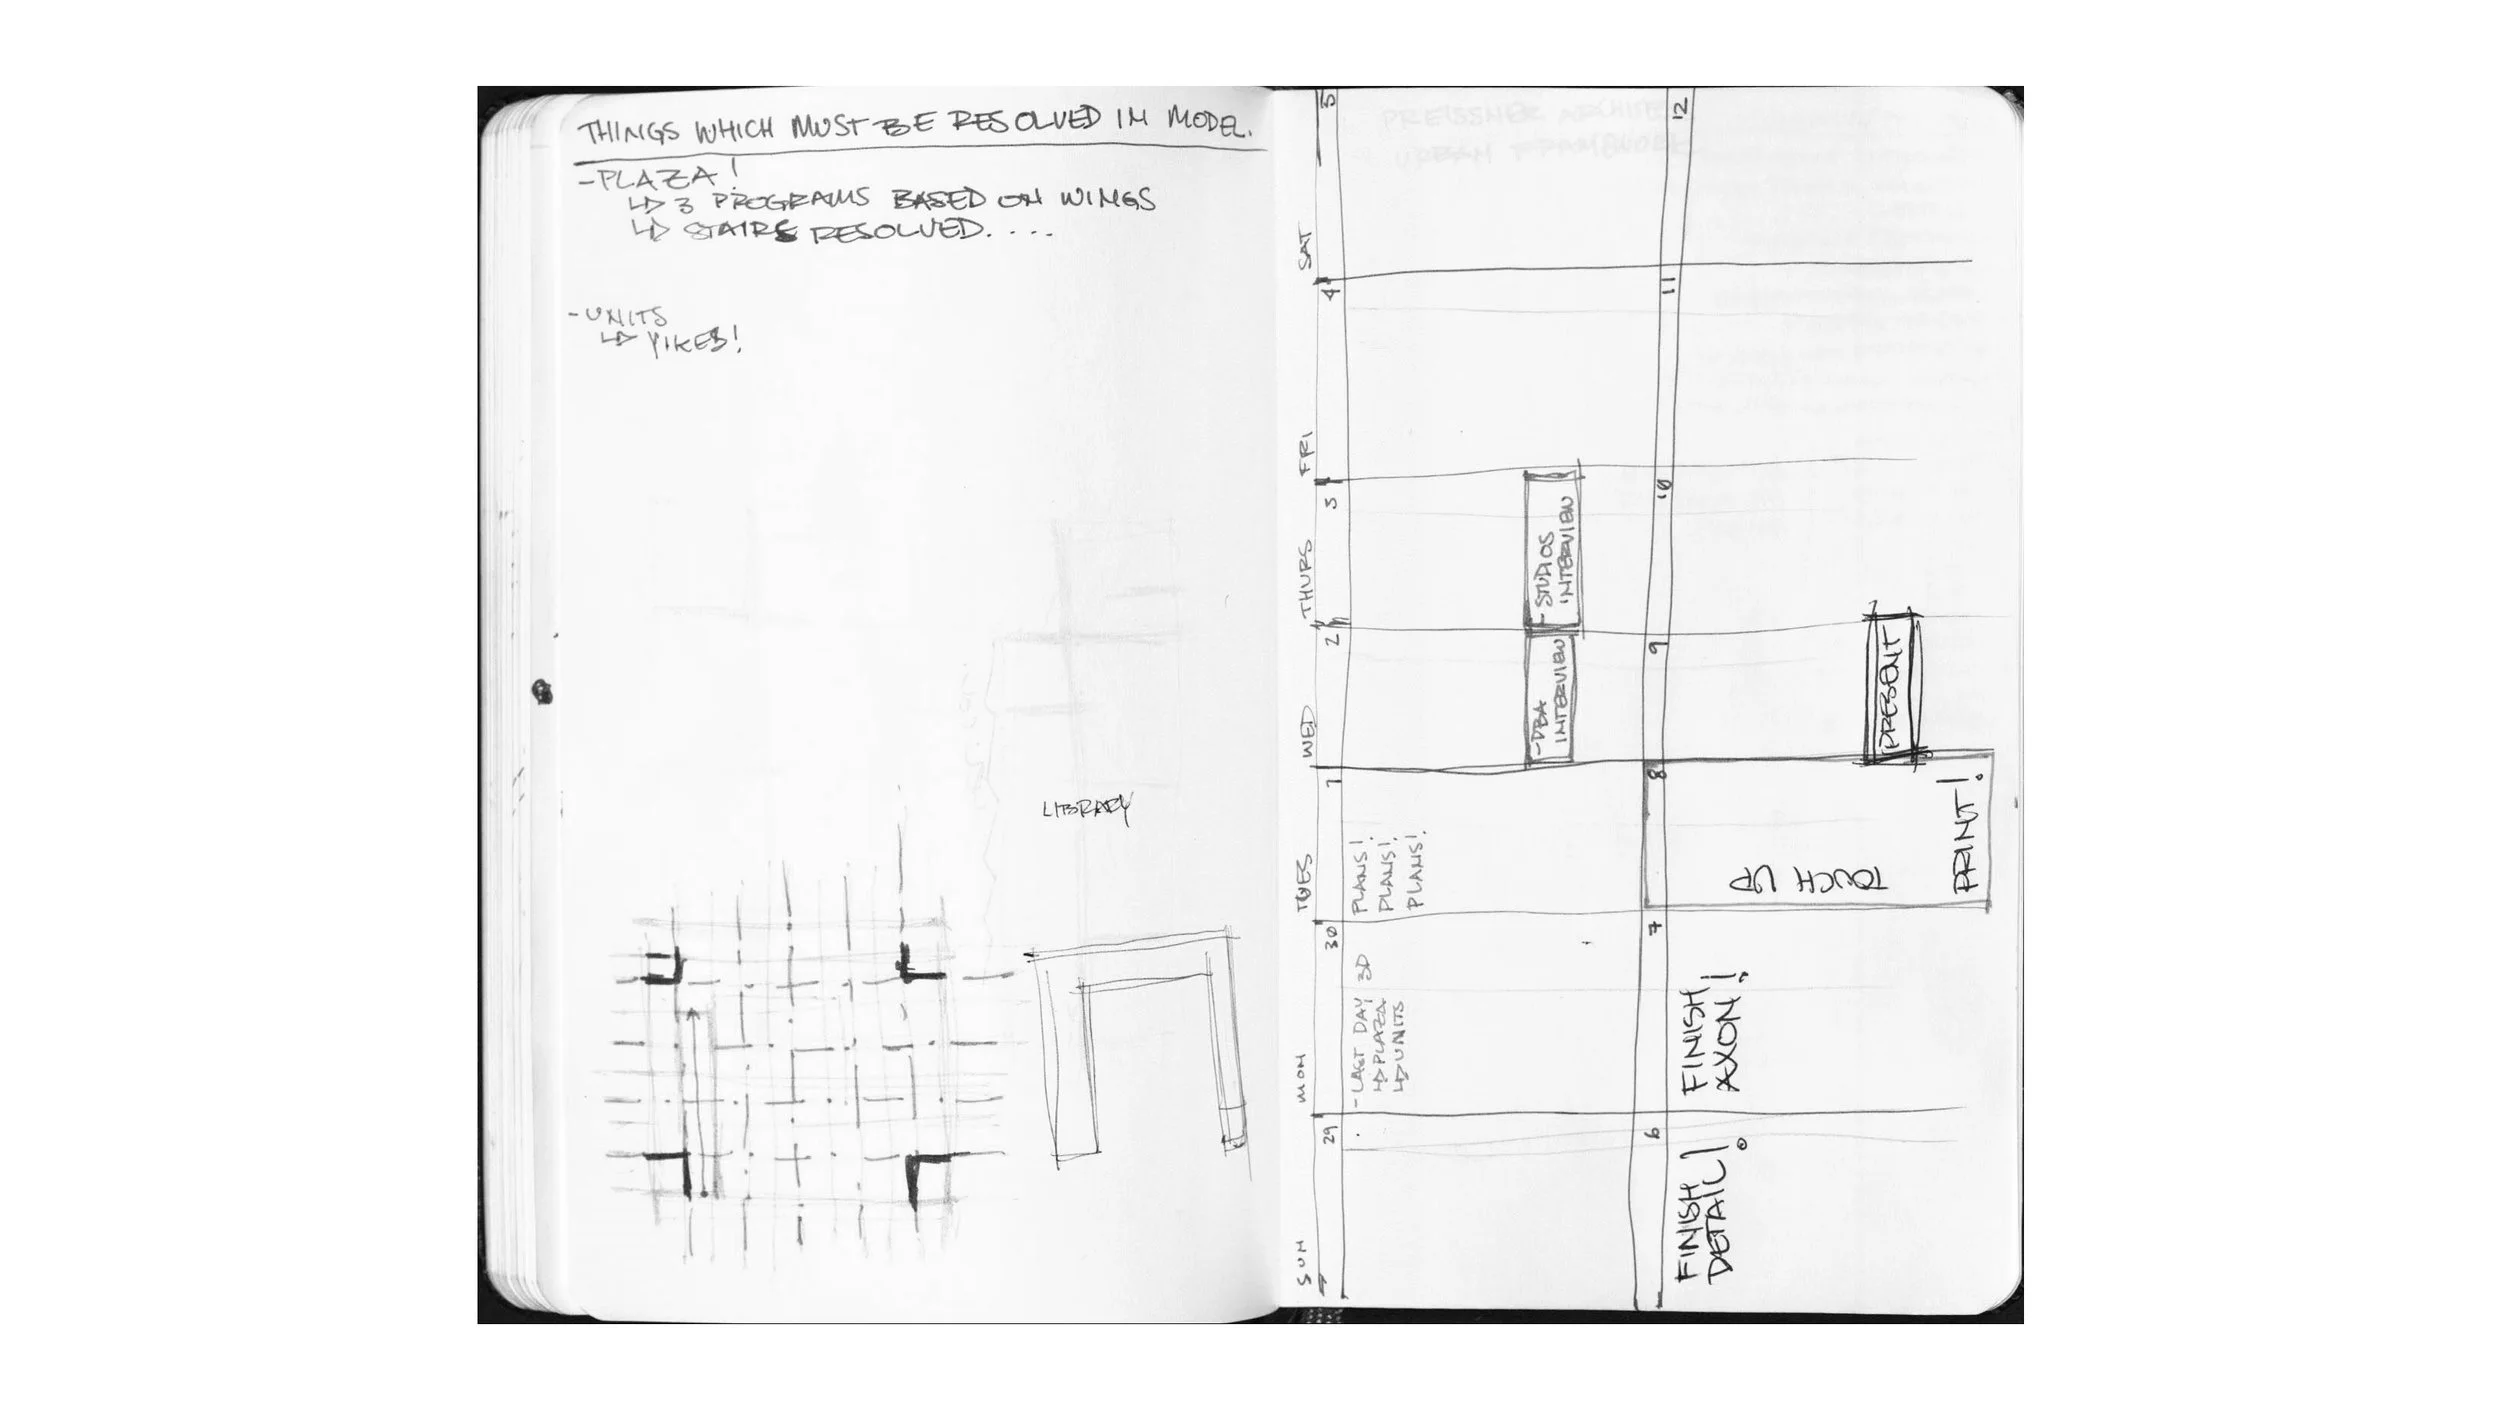 THINGS WHICH MUST BE RESOLVED IN MODEL.
-PLAZA!
↳ 3 PROGRAMS BASED ON WINGS
↳ STAIRS RESOLVED....
-UNITS
↳ YIKES!
LIBRARY
SUN
MON
TUES
WED
THURS
FRI
SAT
29
30
1
2
3
4
5
-LAST DAY 3D
↳ PLAZA
↳ UNITS
PLANS!
PLANS!
PLANS!
-DBA
INTERVIEW
-STUDIOS
INTERVIEW
6
7
8
9
10
11
12
FINISH
DETAIL!
FINISH
AXON!
TOUCH
UP
PRINT!
PRESENT